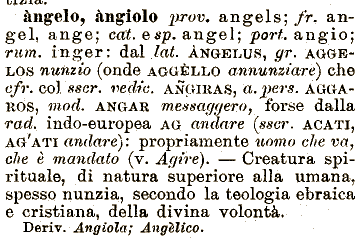 àngelo, àngiolo prov. angels; fr. an-
gel, ange; cat. e sp. angel; port. angio;
rum. inger: dal lat. ÀNGELUS, gr. AGGE-
LOS nunzio (onde AGGÈLLO annunziare) che
cfr. col sscr. vedic. AÑGIRAS, a. pers. AGGA-
ROS, mod. ANGAR messaggero, forse dalla
rad. indo-europea AG andare (sscr. ACATI,
AG'ATI andare): propriamente uomo che va,
che è mandato (v. Agire). — Creatura spi-
rituale, di natura superiore alla umana,
spesso nunzia, secondo la teologia ebraica
e cristiana, della divina volontà.
Deriv. Angiola; Angèlico.